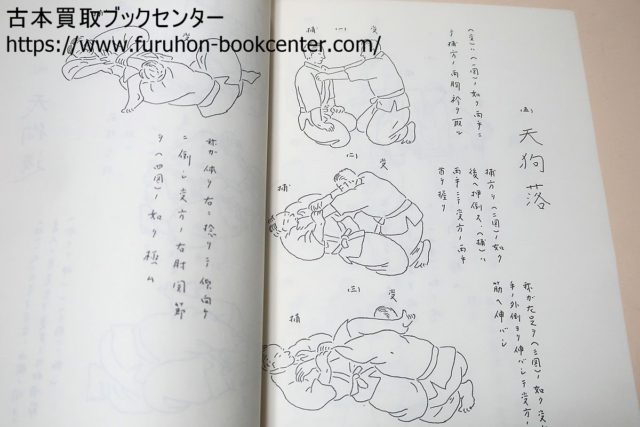 古本買取ブックセンター
https://www.furuhon-bookcenter.com/
(五)
天狗落
(受)ハ(一図)ノ如ク両手ニ
テ捕方ノ両胸衿ヲ取ル
捕方ヲ(二図)ノ如ク
後ヘ押倒ス.(捕)ハ
両手ニテ受方ノ両手
首ヲ握リ
我が左足ヲ(三図)ノ如ク受方
手ノ外側ヨリ伸バシテ受方ノ
筋ヘ伸バシ
(一)
捕
受
(二)
捕
受
(三)
捕
受
受
我が体ヲ右ニ捻リテ仰向ケ
ニ倒シ受方ノ右肘関節
ヲ(四図)ノ如ク極ム